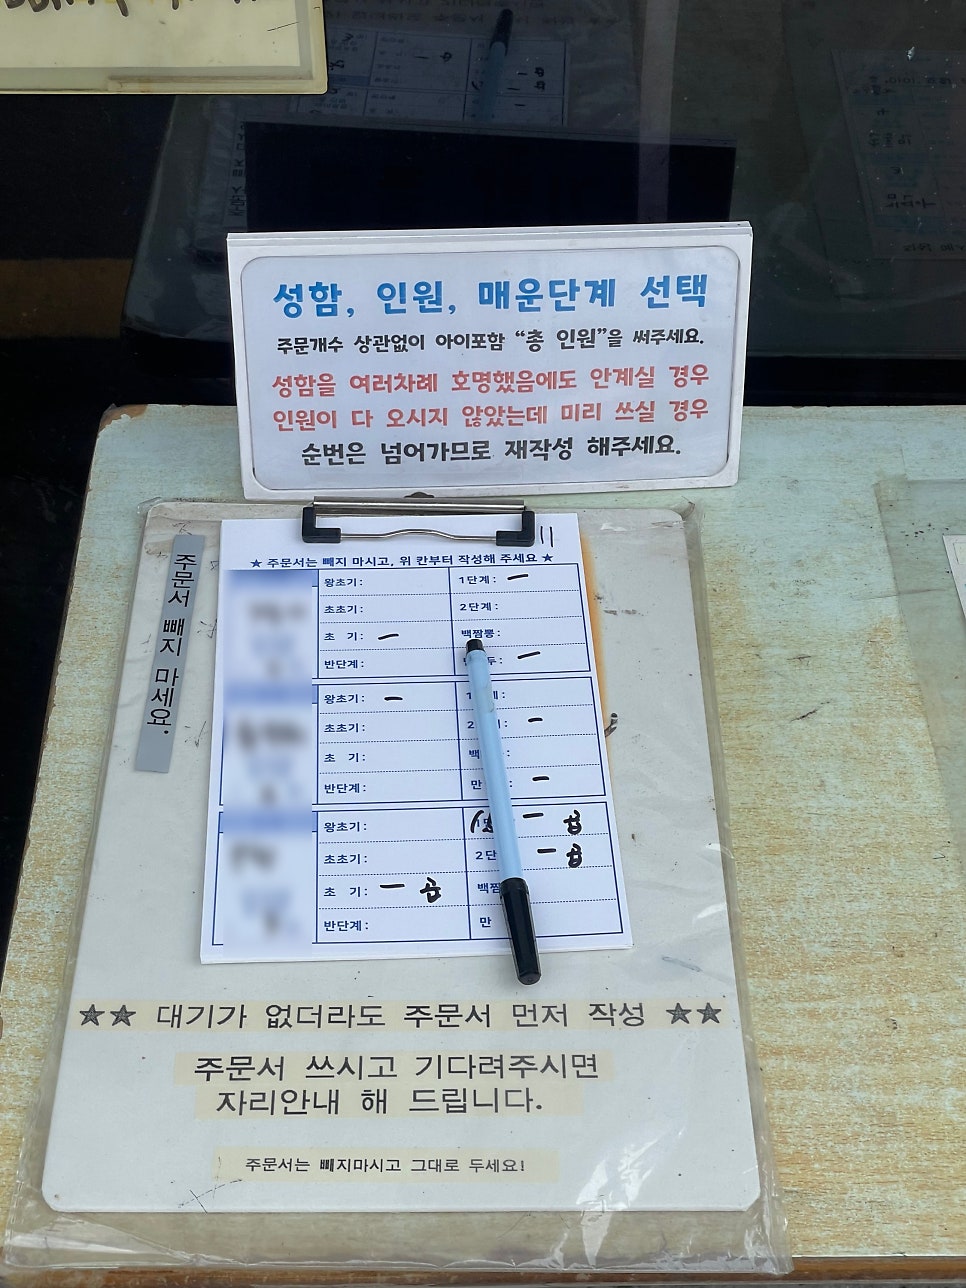 성함, 인원, 매운단계 선택
주문개수 상관없이 아이포함 “총 인원”을 써주세요.
성함을 여러차례 호명했음에도 안계실 경우
인원이 다 오시지 않았는데 미리 쓰실 경우
순번은 넘어가므로 재작성 해주세요.
11
주문서 빼지 마세요.
★ 주문서는 빼지 마시고, 위 칸부터 작성해 주세요 ★
왕초기: 1단계: ㅡ
초초기: 2단계:
초 기: ㅡ 백짬뽕:
반단계: 두: ㅡ
왕초기: ㅡ 1 계:
초초기: 2 : ㅡ
초 기: 백 :
반단계: 만 : ㅡ
왕초기: ㅡ 곱
초초기: 2단 ㅡ 곱
초 기: ㅡ 곱 백짬
반단계: 만
★★ 대기가 없더라도 주문서 먼저 작성 ★★
주문서 쓰시고 기다려주시면
자리안내 해 드립니다.
주문서는 빼지마시고 그대로 두세요!